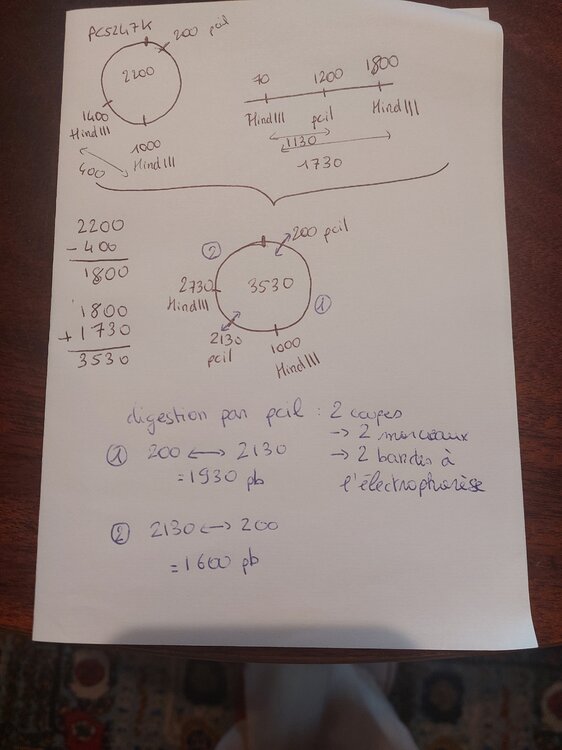 pCS247K
200 pciI
2200
1400
HindIII
1000
HindIII
400
70 1200 1800
HindIII pciI HindIII
1130
1730
2200
- 400
1800
1800
+ 1730
3530
② 200 pciI
2730 3530
HindIII ①
2130
pciI
1000
HindIII
digestion par pciI : 2 coupes
→ 2 morceaux
→ 2 bandes à
l'électrophorèse
① 200 ⟷ 2130
= 1930 pb
② 2130 ⟷ 200
= 1600 pb